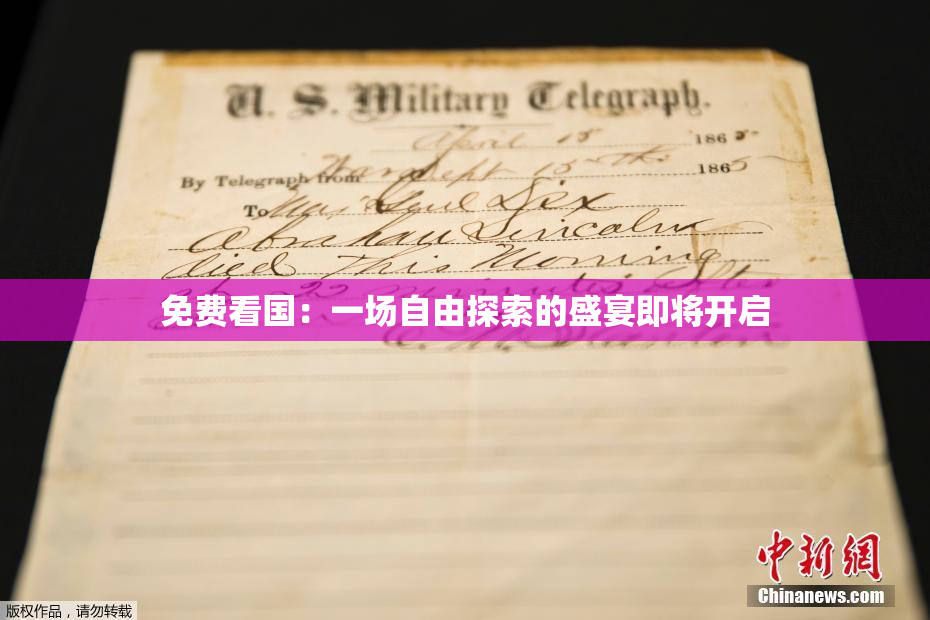 U. S. Military Telegraph.
April 15 1865
By Telegraph from War Dept 15th 1865
To Maj Genl Dix
Abraham Lincoln
died This Morning
at 22 minutes after
免费看国：一场自由探索的盛宴即将开启
E. M. Stanton
中新网
Chinanews.com
版权作品，请勿转载